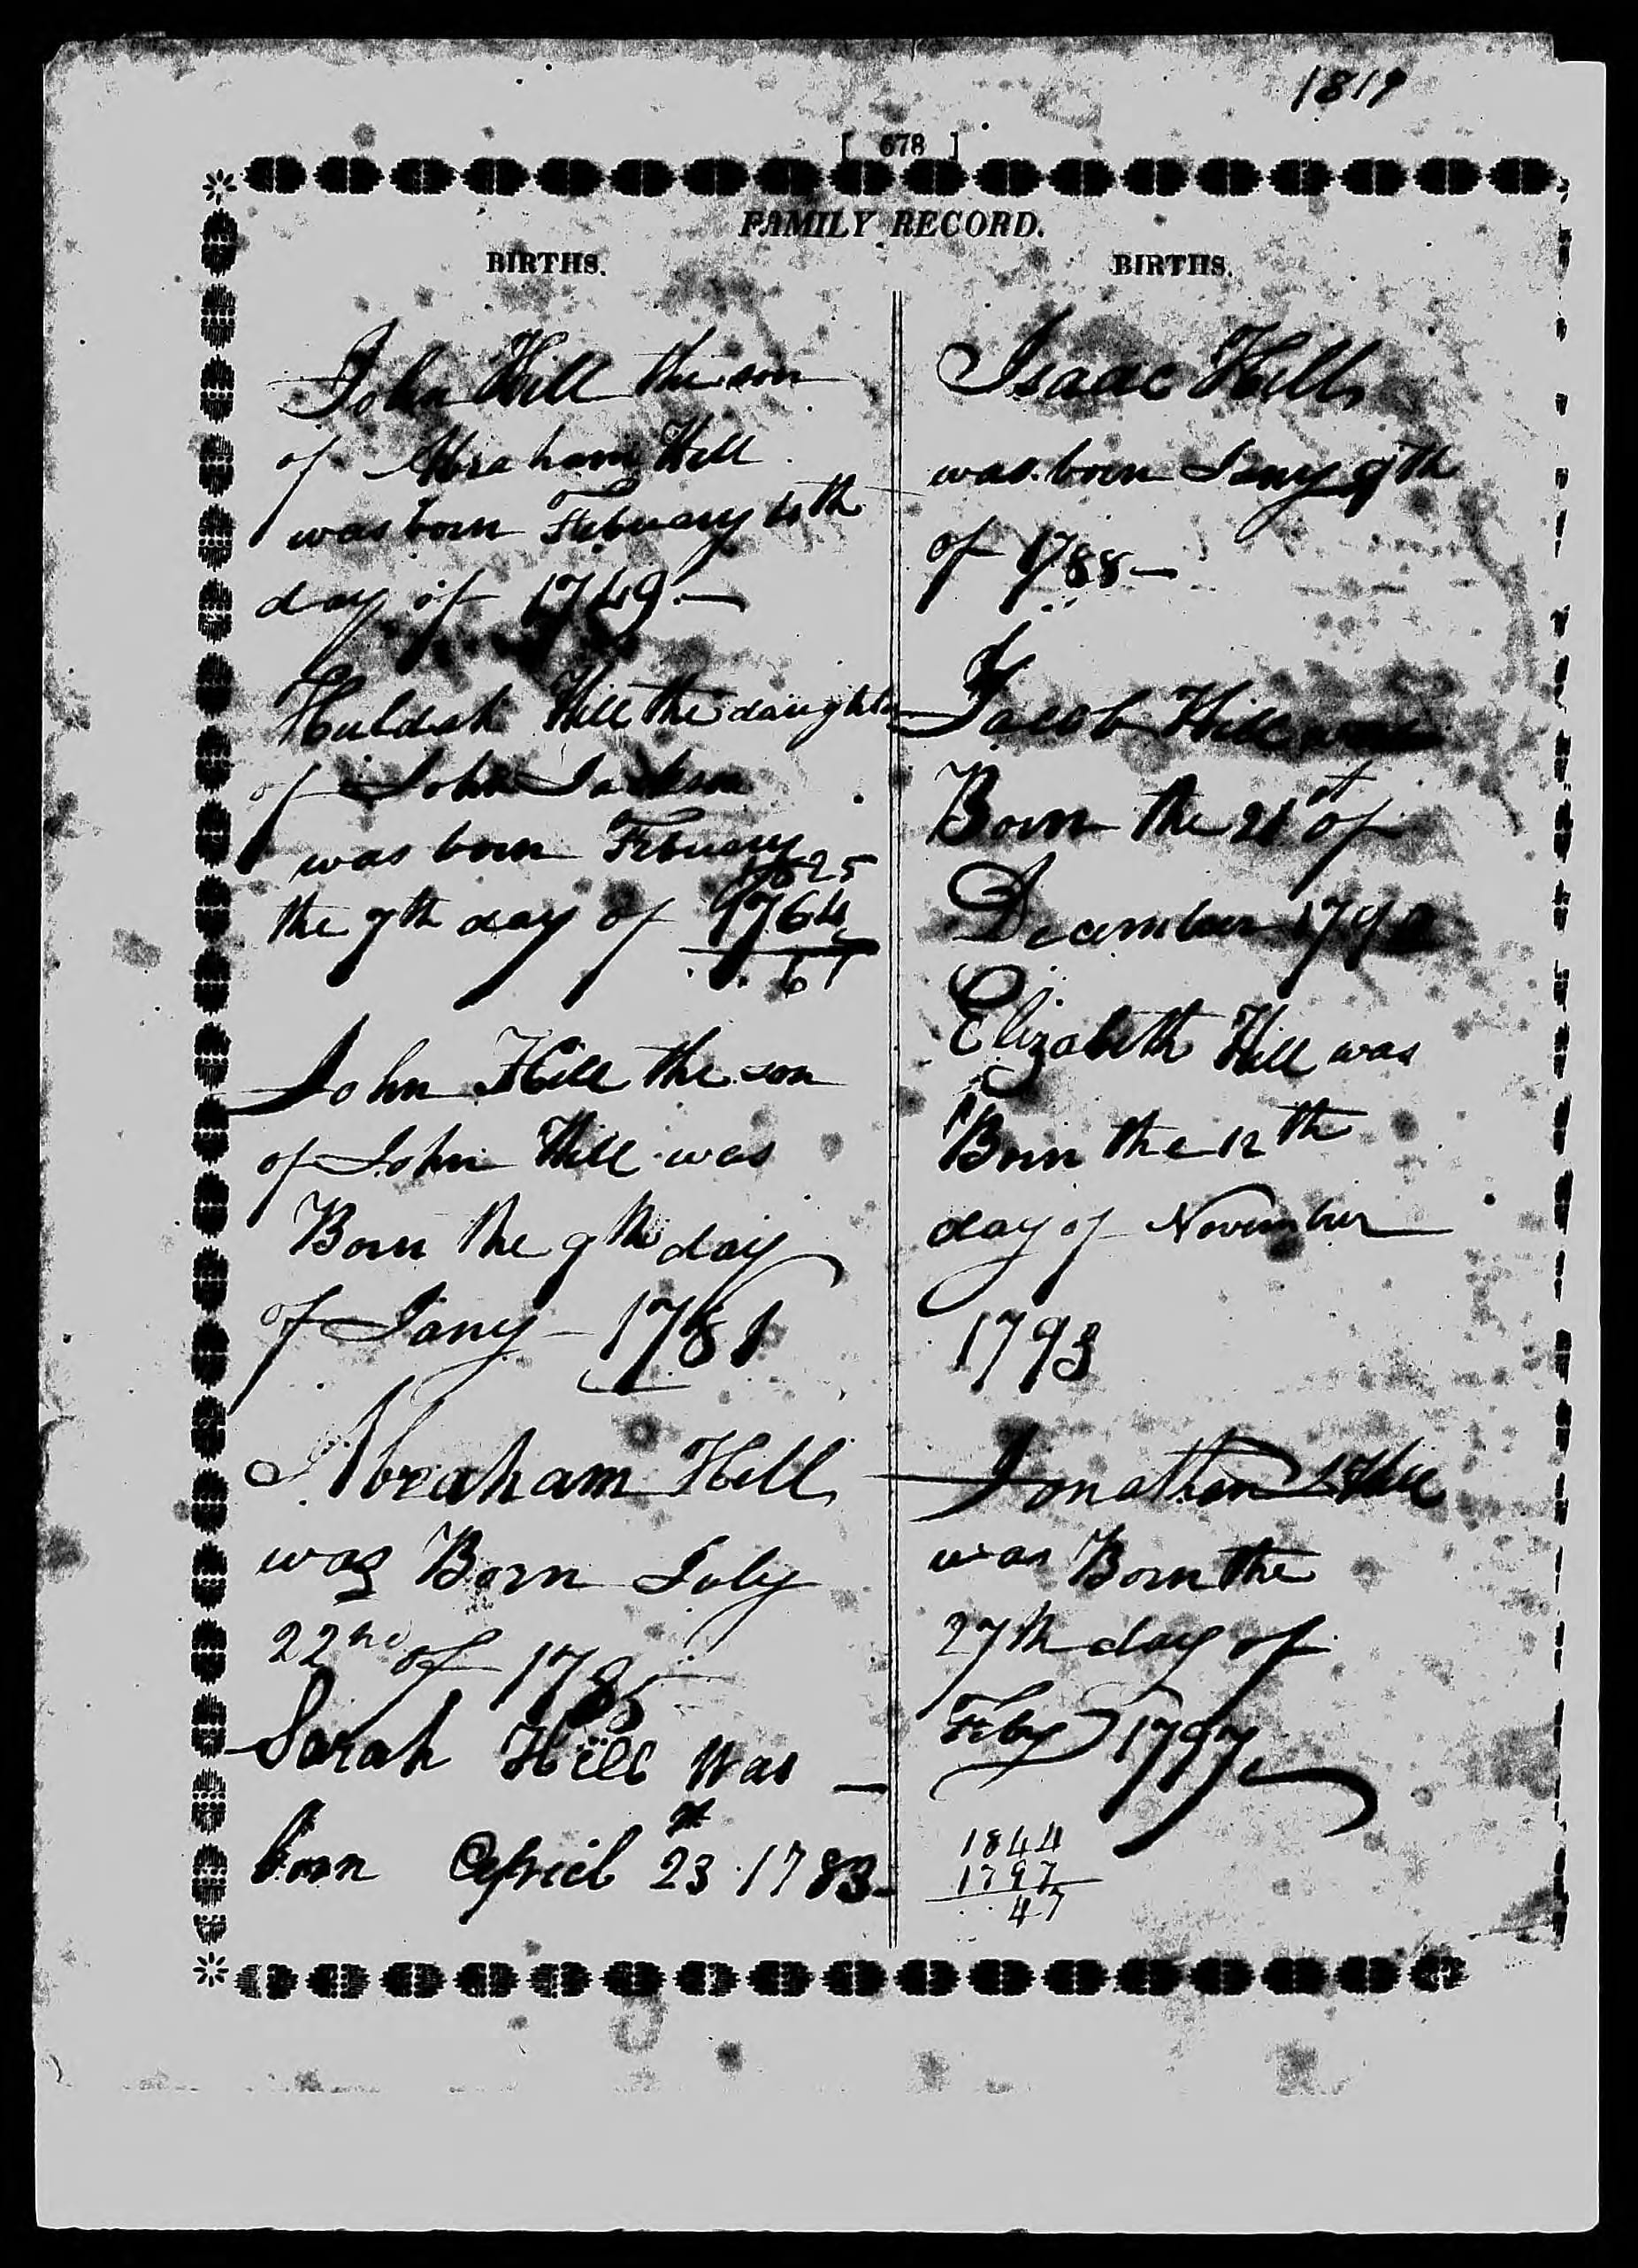 1819
[ 678 ]
FAMILY RECORD.
BIRTHS.
John Hill the son
of Abraham Hill
was born Febuary 4th
day of 1749.—
Huldah Hill the daughter
of John Jackson
was born Febuary
1825
the 7th day of 1764
61
John Hill the son
of John Hill was
Born the 9th day
of Jany – 1781
Abraham Hill
was Born July
22nd of 1785
Sarah Hill was —
born April 23 1783
BIRTHS.
Isaac Hill
was born Jany 9th
of 1788—
Jacob Hill was
Born the 21st of
December 1790
Elizabeth Hill was
Born the 12th
day of November
1793
Jonathan Hill
was Born the
27th day of
Feby 1797
1844
1797
47